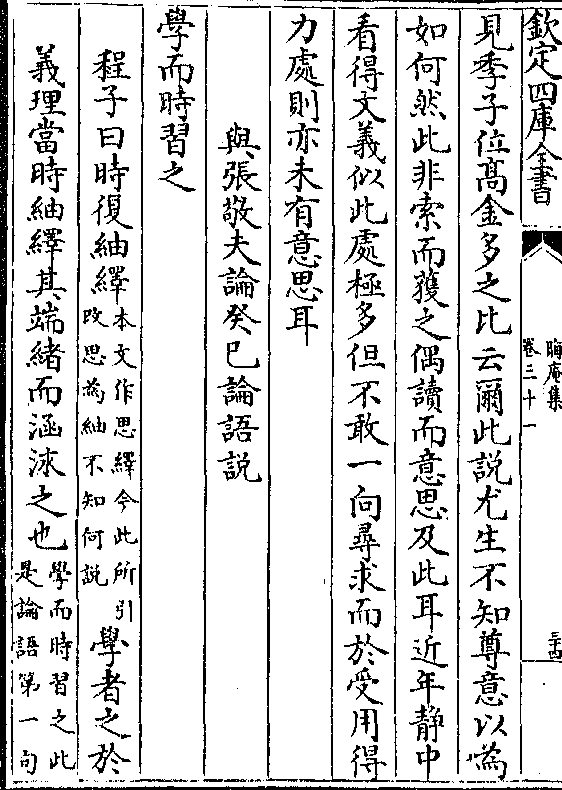 欽定四庫全書
晦庵集
卷三十一
三十四
見季子位髙金多之比云爾此説尤生不知尊意以為
如何然此非索而獲之偶讀而意思及此耳近年静中
看得文義似此處極多但不敢一向尋求而於受用得
力處則亦未有意思耳
與張敬夫論癸巳論語説
學而時習之
程子曰時復紬繹本文作思繹今此所引
改思為紬不知何説學者之於
義理當時紬繹其端緒而涵泳之也學而時習之此
是論語第一句